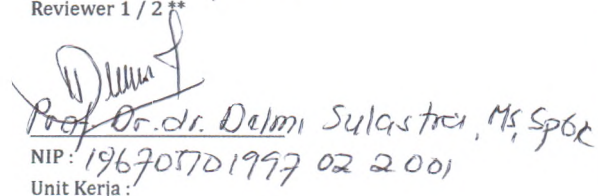 Reviewer 1 / 2 **
Prof. Dr. dr. Delmi Sulastri, MS, SpGK
NIP : 196705701997 02 2 001
Unit Kerja :